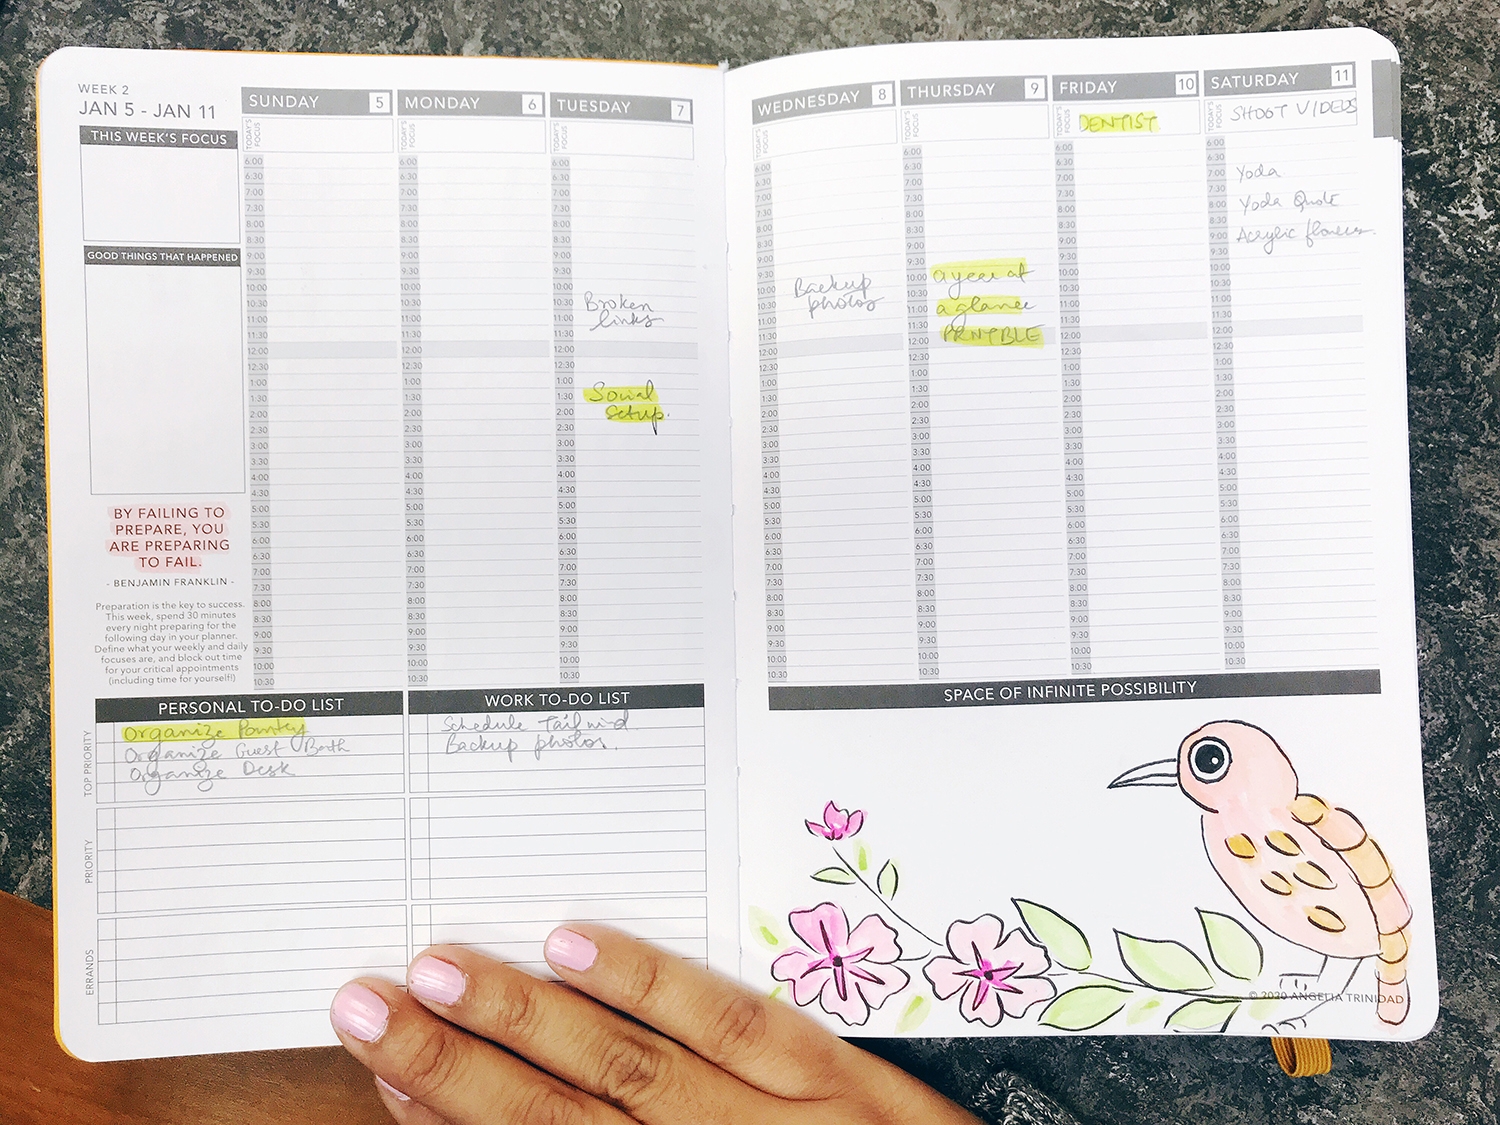 WEEK 2
JAN 5 - JAN 11
THIS WEEK'S FOCUS
GOOD THINGS THAT HAPPENED
BY FAILING TO
PREPARE, YOU
ARE PREPARING
TO FAIL.
- BENJAMIN FRANKLIN -
Preparation is the key to success.
This week, spend 30 minutes
every night preparing for the
following day in your planner.
Define what your weekly and daily
focuses are, and block out time
for your critical appointments
(including time for yourself!)
SUNDAY 5
TODAY'S
FOCUS
6:00
6:30
7:00
7:30
8:00
8:30
9:00
9:30
10:00
10:30
11:00
11:30
12:00
12:30
1:00
1:30
2:00
2:30
3:00
3:30
4:00
4:30
5:00
5:30
6:00
6:30
7:00
7:30
8:00
8:30
9:00
9:30
10:00
10:30
MONDAY 6
TODAY'S
FOCUS
6:00
6:30
7:00
7:30
8:00
8:30
9:00
9:30
10:00
10:30
11:00
11:30
12:00
12:30
1:00
1:30
2:00
2:30
3:00
3:30
4:00
4:30
5:00
5:30
6:00
6:30
7:00
7:30
8:00
8:30
9:00
9:30
10:00
10:30
TUESDAY 7
TODAY'S
FOCUS
6:00
6:30
7:00
7:30
8:00
8:30
9:00
9:30
10:00
10:30 Broken
11:00 links
11:30
12:00
12:30
1:00
1:30 Social
2:00 Setup.
2:30
3:00
3:30
4:00
4:30
5:00
5:30
6:00
6:30
7:00
7:30
8:00
8:30
9:00
9:30
10:00
10:30
WEDNESDAY 8
TODAY'S
FOCUS
6:00
6:30
7:00
7:30
8:00
8:30
9:00
9:30
10:00 Backup
10:30 photos
11:00
11:30
12:00
12:30
1:00
1:30
2:00
2:30
3:00
3:30
4:00
4:30
5:00
5:30
6:00
6:30
7:00
7:30
8:00
8:30
9:00
9:30
10:00
10:30
THURSDAY 9
TODAY'S
FOCUS
6:00
6:30
7:00
7:30
8:00
8:30
9:00
9:30
10:00 a year at
10:30
11:00 a glance
11:30
12:00 PRNTBLE
12:30
1:00
1:30
2:00
2:30
3:00
3:30
4:00
4:30
5:00
5:30
6:00
6:30
7:00
7:30
8:00
8:30
9:00
9:30
10:00
10:30
FRIDAY 10
TODAY'S
FOCUS
DENTIST
6:00
6:30
7:00
7:30
8:00
8:30
9:00
9:30
10:00
10:30
11:00
11:30
12:00
12:30
1:00
1:30
2:00
2:30
3:00
3:30
4:00
4:30
5:00
5:30
6:00
6:30
7:00
7:30
8:00
8:30
9:00
9:30
10:00
10:30
SATURDAY 11
TODAY'S
FOCUS
SHOOT VIDEOS
6:00
6:30
7:00 Yoda
7:30
8:00 Yoda Quote
8:30
9:00 Acrylic flowers.
9:30
10:00
10:30
11:00
11:30
12:00
12:30
1:00
1:30
2:00
2:30
3:00
3:30
4:00
4:30
5:00
5:30
6:00
6:30
7:00
7:30
8:00
8:30
9:00
9:30
10:00
10:30
PERSONAL TO-DO LIST
TOP PRIORITY
Organize Pantry
Organize Guest Bath
Organize Desk
PRIORITY
ERRANDS
WORK TO-DO LIST
Schedule Tailwind
Backup photos.
SPACE OF INFINITE POSSIBILITY
© 2020 ANGELIA TRINIDAD